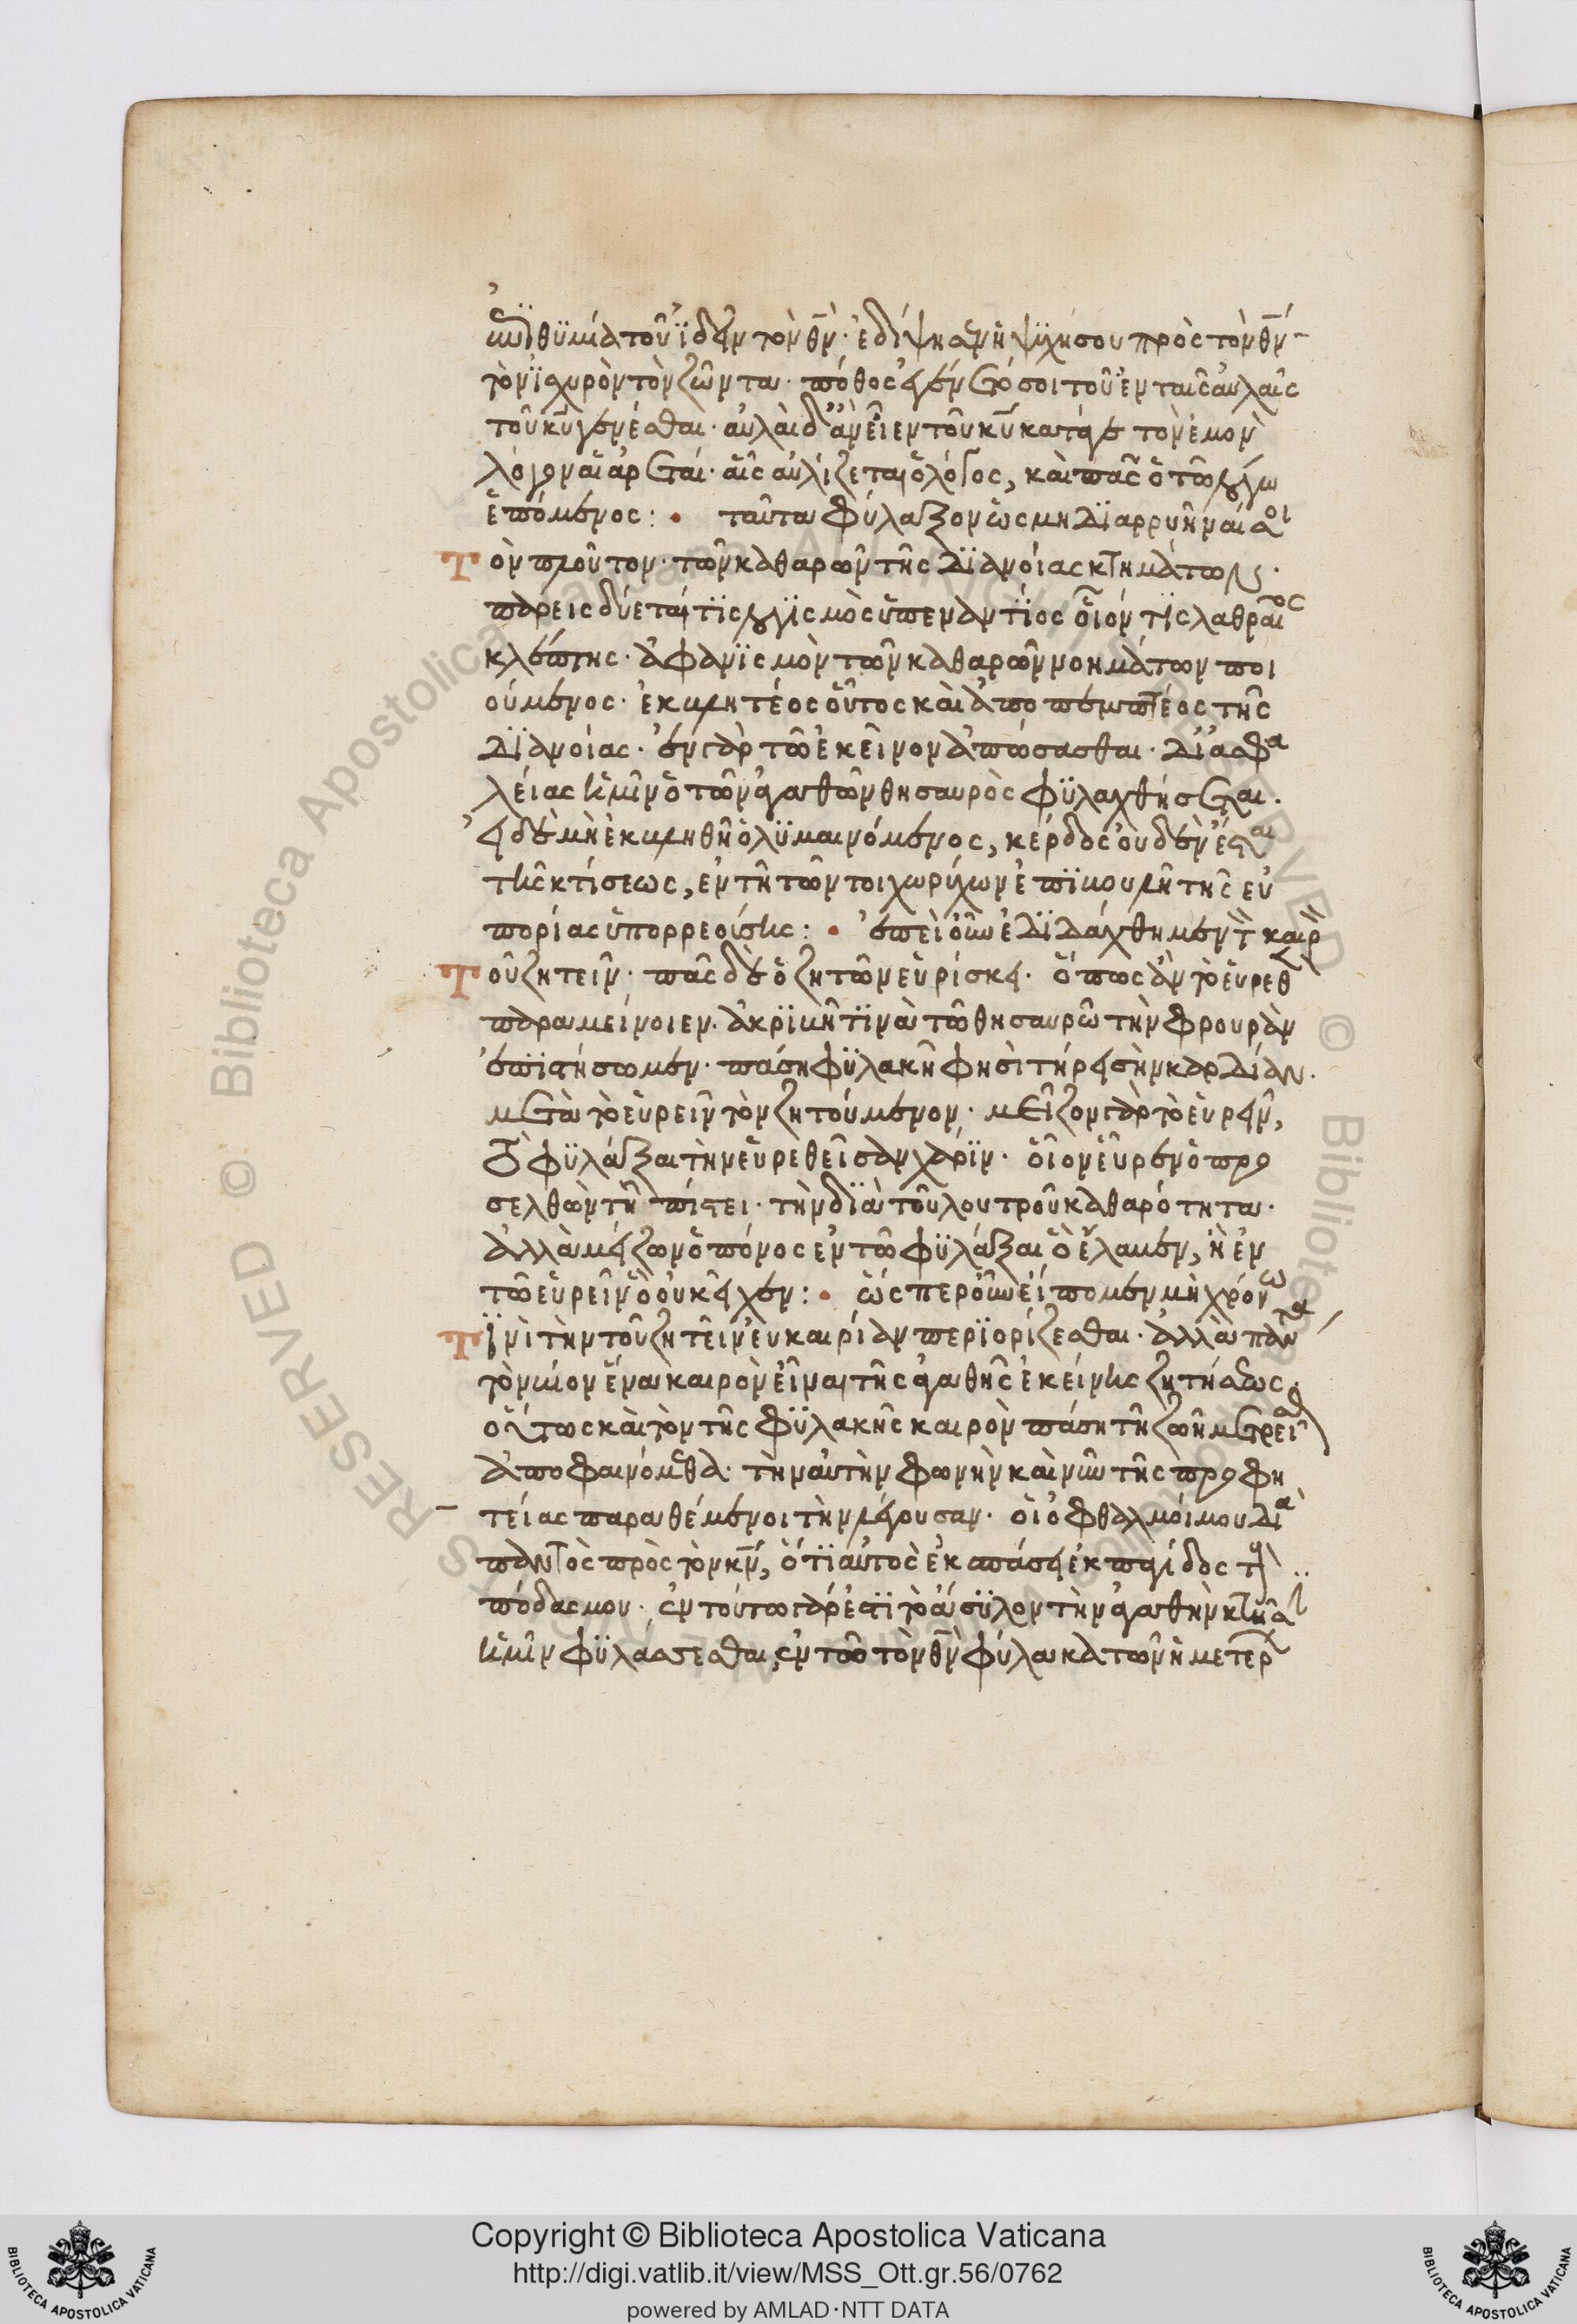 ἐπιθϋμία τοῦ ἰδεῖν τὸν θν· ἐδίψησεν ἡ ψϋχή σου πρὸς τὸν θν
τὸν ἰσχυρὸν τὸν ζῶντα· πόθος ἐγένετό σοι τοῦ ἐν ταῖς αὐλαῖς
τοῦ κυ γενέσθαι· αὐλαὶ δ' ἂν εἶεν τοῦ κυ κατά γε τὸν ἐμὸν
λόγον αἱ ἀρεταί· αἷς αὐλίζεται ὁ λόγος, καὶ πᾶς ὁ τῶ λόγω
ἑπόμενος: • ταῦτα φύλαξον ὡς μὴ διαρρυῆναί σοι
Τὸν πλοῦτον· τῶν καθαρῶν τῆς διανοίας κτημάτων·
παρεισδύεταί τις λογισμὸς ὑπεναντίος οἷόν τις λαθραῖος
κλέπτης· ἀφανισμὸν τῶν καθαρῶν νοημάτων ποι
ούμενος· ἐκβλητέος οὗτος καὶ ἀποπεμπτέος τῆς
διανοίας· ἐν γὰρ τῶ ἐκεῖνον ἀπώσασθαι· δι' ἀσφα
λείας ἡμῖν ὁ τῶν ἀγαθῶν θησαυρὸς φϋλαχθήσεται.
εἰ δὲ μὴ ἐκβληθῆ ὁ λϋμαινόμενος, κέρδος οὐδὲν ἔσται
τῆς κτίσεως, ἐν τῆ τῶν τοιχωρύχων ἐπιβουλῆ τῆς εὐ
πορίας ὑπορρεούσης: • ἐπεὶ οὖν ἐδιδάχθημεν τ καιρ
Τοῦ ζητεῖν· πᾶς δὲ ὁ ζητῶν εὑρίσκει· ὅπως ἂν τὸ εὑρεθὲν
παραμείνοιεν· ἀκριβῆ τινὰ τῶ θησαυρῶ τὴν φρουρὰν
ἐπιστήσωμεν· πάση φϋλακῆ φησὶ τήρει σὴν καρδίαν.
μετὰ τὸ εὑρεῖν τὸν ζητούμενον· μεῖζον γὰρ τὸ εὑρεῖν,
τὸ φϋλάξαι τὴν εὑρεθεῖσαν χάριν· οἷον εὗρεν ὁ προ
σελθὼν τῆ πίστει· τὴν διὰ τοῦ λουτροῦ καθαρότητα·
ἀλλὰ μείζων ὁ πόνος ἐν τῶ φϋλάξαι ὃ ἔλαβεν, ἢ ἐν
τῶ εὑρεῖν ὃ οὐκ εἶχεν: • ὥσπερ οὖν εἴπομεν μὴ χρόνω
Τινὶ τὴν τοῦ ζητεῖν εὐκαιρίαν περιορίζεσθαι· ἀλλὰ πάντα
τὸν βίον ἕνα καιρὸν εἶναι τῆς ἀγαθῆς ἐκείνης ζητήσεως·
οὕτως καὶ τὸν τῆς φϋλακῆς καιρὸν πάση τῆ ζωῆ μετρεῖσθαι
ἀποφαινόμεθα· τὴν αὐτὴν φωνὴν καὶ νῦν τῆς προφη
τείας παραθέμενοι τὴν λέγουσαν· οἱ ὀφθαλμοί μου διὰ
παντὸς πρὸς τὸν κν, ὅτι αὐτὸς ἐκσπάσει ἐκ παγίδος τοὺς
πόδας μου· ἐν τούτω γάρ ἐστι τὸ ἄσϋλον τὴν ἀγαθὴν κτῆσιν
ἡμῖν φϋλάσσεσθαι, ἐν τῶ τὸν θν φύλακα τῶν ἡμετέρων
Copyright © Biblioteca Apostolica Vaticana
http://digi.vatlib.it/view/MSS_Ott.gr.56/0762
powered by AMLAD·NTT DATA